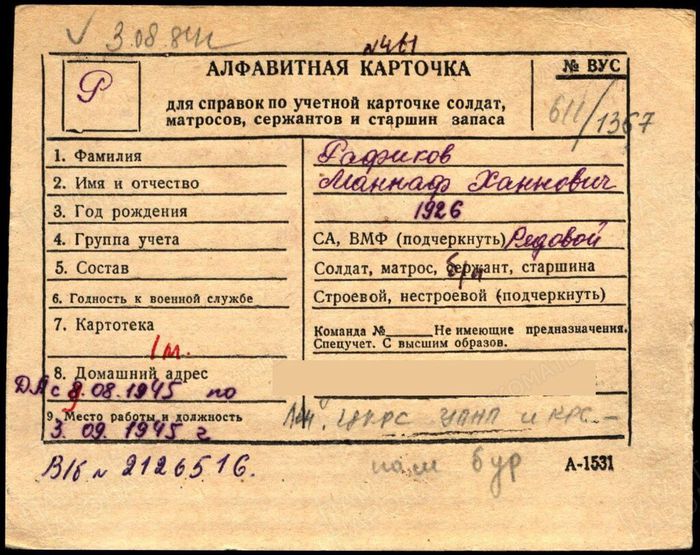 3.08.84
№461
АЛФАВИТНАЯ КАРТОЧКА
№ ВУС
Р
для справок по учетной карточке солдат,
матросов, сержантов и старшин запаса
611/1367
1. Фамилия Рафиков
2. Имя и отчество Маннаф Ханнович
3. Год рождения 1926
4. Группа учета СА, ВМФ (подчеркнуть) Рядовой
5. Состав Солдат, матрос, сержант, старшина
6. Годность к военной службе Строевой, нестроевой (подчеркнуть)
7. Картотека Команда № Не имеющие предназначения.
Спецучет. С высшим образов.
8. Домашний адрес
с 9.08.1945 по
9. Место работы и должность
3.09.1945 г
В/б № 2126516.
пом бур
А-1531